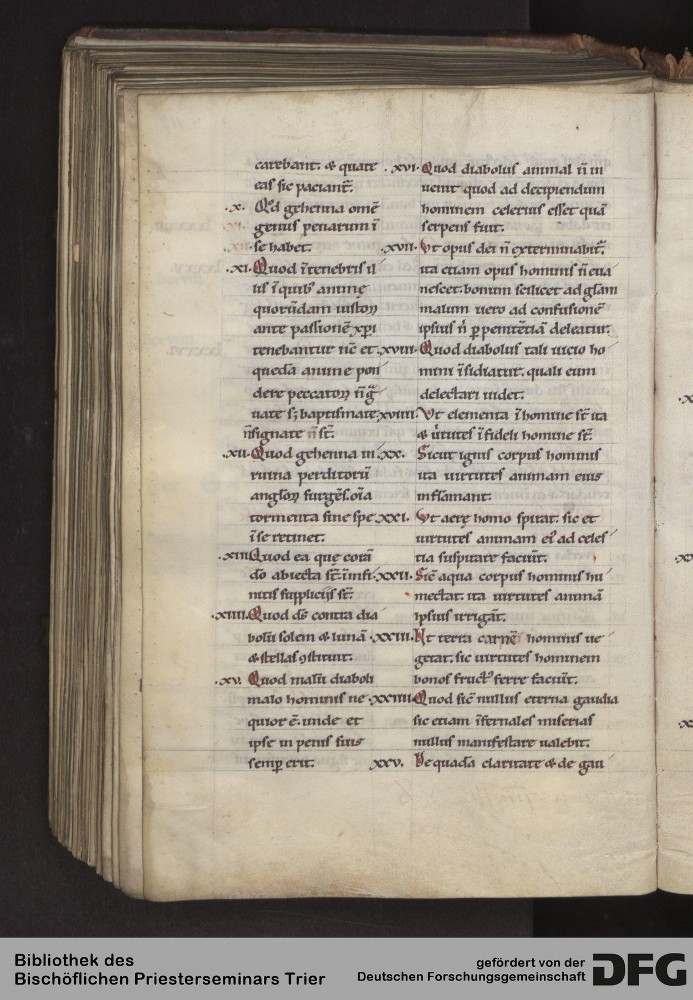 carebant. & quare
eas sic paciant̄.
.x. Qd̄ gehenna omē
genus penarum ī
se habet.
.xi. Quod ī tenebris il
lis ī quib' animę
quorūdam iustoꝝ
ante passionē xp̄i
tenebantur nc̄ et
quedā anime pon
dere peccatoꝝ n̄ g̊
uate sꝫ baptismate
īsignate st̄.
.xii. Quod gehenna in
ruina perditorū
angl̄oꝝ surgēs. oīa
tormenta sine spe
ī se retinet.
.xiii. Quod ea quę corā
dō abiecta st̄. īnfi
nitis suppliciis st̄.
.xiiii. Quod ds̄ contra dia
bolū solem & lunā
& stellas ꝯstituit.
.xv. Quod malū diaboli
malo hominis ne
quior ē. unde et
ipse in penis suis
semꝑ erit.
.xvi. Quod diabolus animal n̄ in
uenit quod ad decipiendum
hominem celerius esset quā
serpens fuit.
.xvii. Vt opus dei n̄ exterminabit̄.
ita etiam opus hominis n̄ eua
nescet. bonum scilicet ad glām
malum uero ad confusionē
ipsius n̄ ꝑ penitētiā deleatur.
.xviii. Quod diabolus tali uicio ho
mini īsidiatur. quali eum
delectari uidet.
.xviiii. Vt elementa ī homine st̄ ita
& ūtutes ī fideli homine st̄.
.xx. Sicut ignis corpus hominis
ita uirtutes animam eius
inflamant.
.xxi. Vt aere homo spirat. sic et
uirtutes animam ei' ad celes
tia suspirare faciūt.
.xxii. Sic̄ aqua corpus hominis hu
mectat. ita uirtutes animā
ipsius irrigāt.
.xxiii. Vt terra carnē hominis ue
getat. sic uirtutes hominem
bonos fruct' ferre faciūt.
.xxiiii. Quod sic̄ nullus eterna gaudia
sic etiam īfernales miserias
nullus manifestare ualebit.
.xxv. De quadā claritate & de gau
Bibliothek des
Bischöflichen Priesterseminars Trier
gefördert von der
Deutschen Forschungsgemeinschaft
DFG